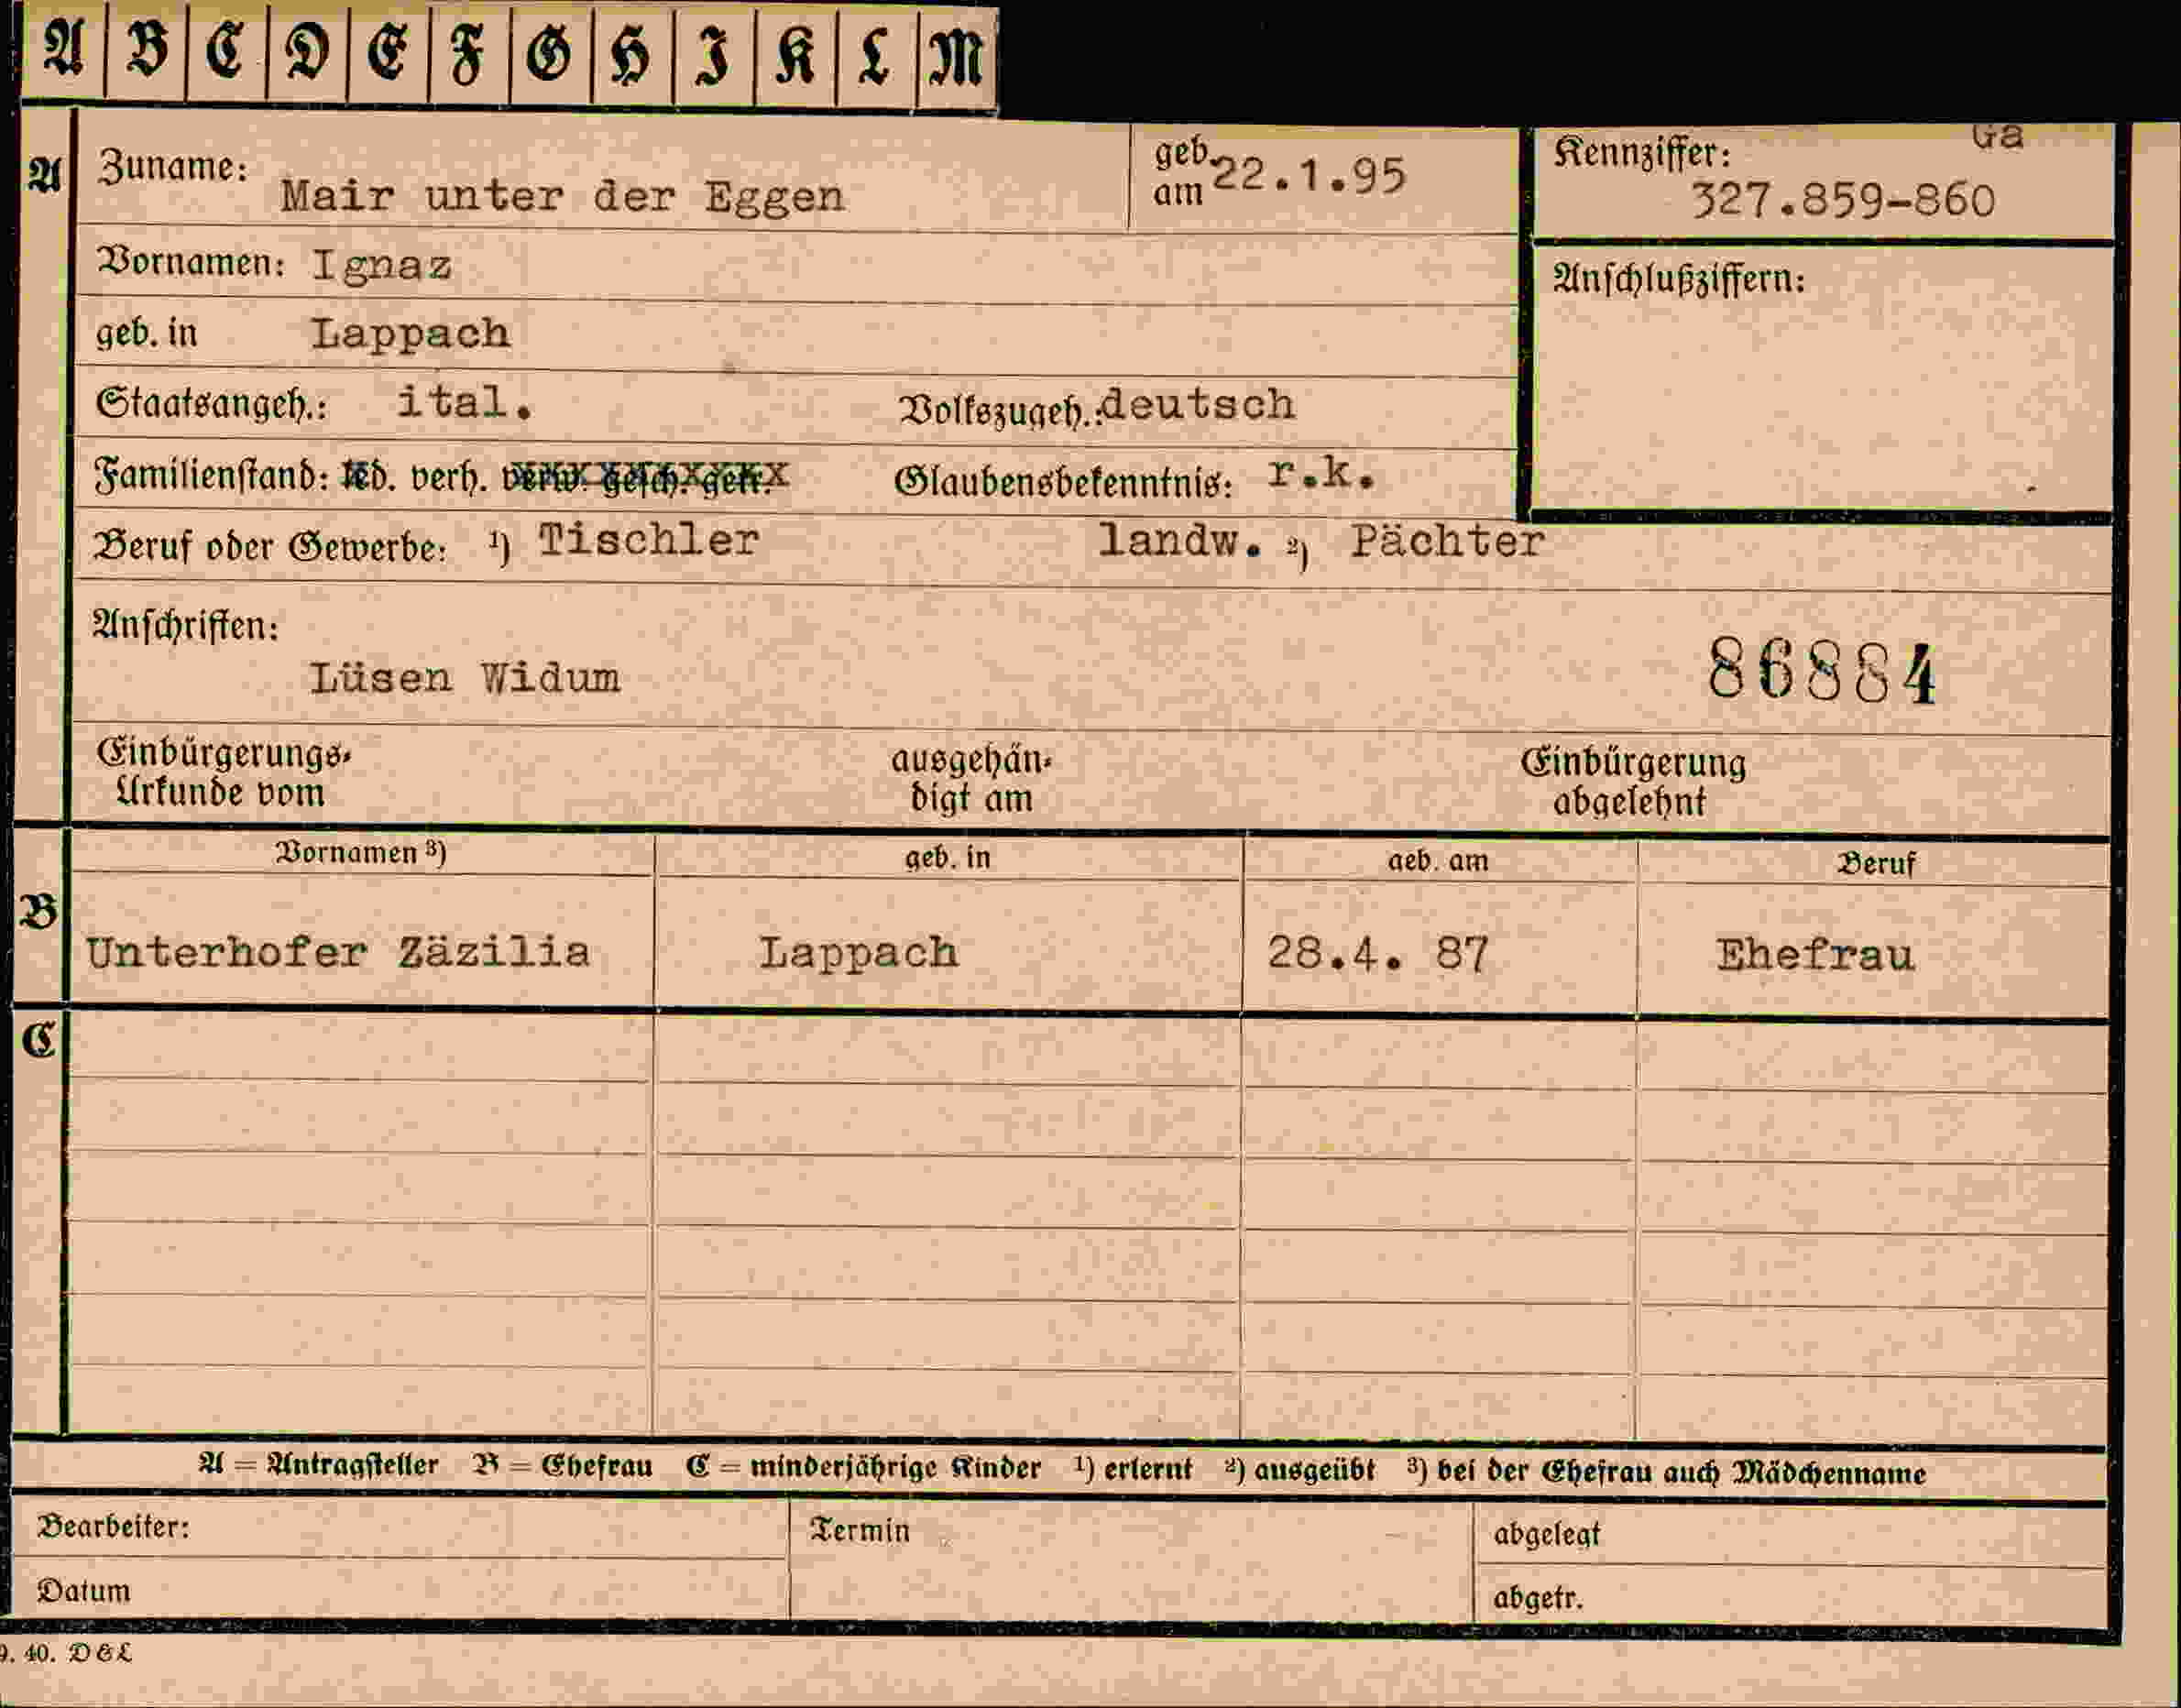 A B C D E F G H I K L M
A Zuname: Mair unter der Eggen geb. am 22.1.95 Kennziffer: Ga 327.859-860
Vornamen: Ignaz Anschlußziffern:
geb. in Lappach
Staatsangeh.: ital. Volkszugeh.: deutsch
Familienstand: led. verh. verw. gesch. getr. Glaubensbekenntnis: r.k.
Beruf oder Gewerbe: ¹) Tischler landw. ²) Pächter
Anschriften:
Lüsen Widum 86884
Einbürgerungs- ausgehän- Einbürgerung
Urkunde vom digt am abgelehnt
Vornamen ³) geb. in geb. am Beruf
B Unterhofer Zäzilia Lappach 28.4. 87 Ehefrau
C
A = Antragsteller B = Ehefrau C = minderjährige Kinder ¹) erlernt ²) ausgeübt ³) bei der Ehefrau auch Mädchenname
Bearbeiter: Termin abgelegt
Datum abgetr.
9. 40. D&L